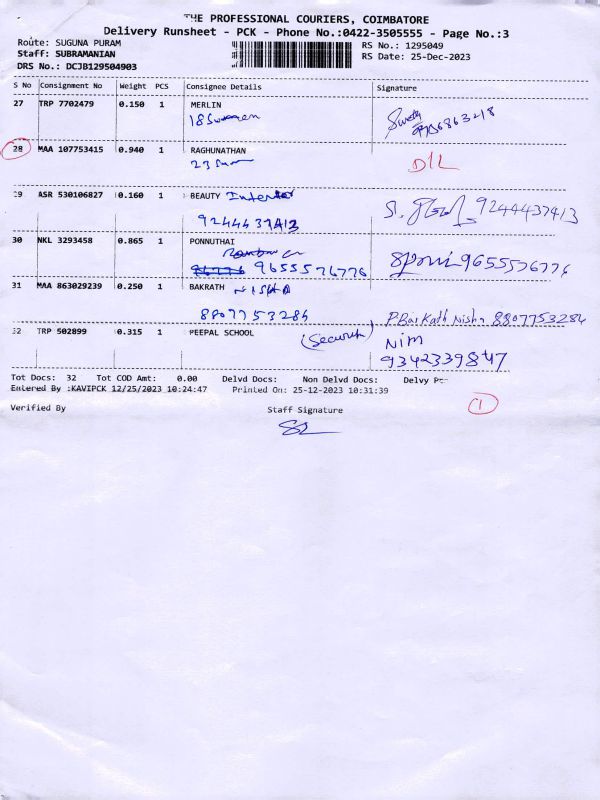 THE PROFESSIONAL COURIERS, COIMBATORE
Delivery Runsheet - PCK - Phone No.:0422-3505555 - Page No.:3
Route: SUGUNA PURAM
Staff: SUBRAMANIAN
DRS No.: DCJB129504903
RS No.: 1295049
RS Date: 25-Dec-2023
S No Consignment No Weight PCS Consignee Details Signature
27 TRP 7702479 0.150 1 MERLIN
28 MAA 107753415 0.940 1 RAGHUNATHAN
D/L
29 ASR 530106827 0.160 1 BEAUTY
9244437413 9244437413
30 NKL 3293458 0.865 1 PONNUTHAI
9655576776 9655576776
31 MAA 863029239 0.250 1 BAKRATH NISHA
8807753284 P.Barkath Nisha 8807753284
32 TRP 502899 0.315 1 PEEPAL SCHOOL (Security)
9342339847
Tot Docs: 32 Tot COD Amt: 0.00 Delvd Docs: Non Delvd Docs: Delvy
Entered By :KAVIPCK 12/25/2023 10:24:47 Printed On: 25-12-2023 10:31:39
1
Verified By Staff Signature